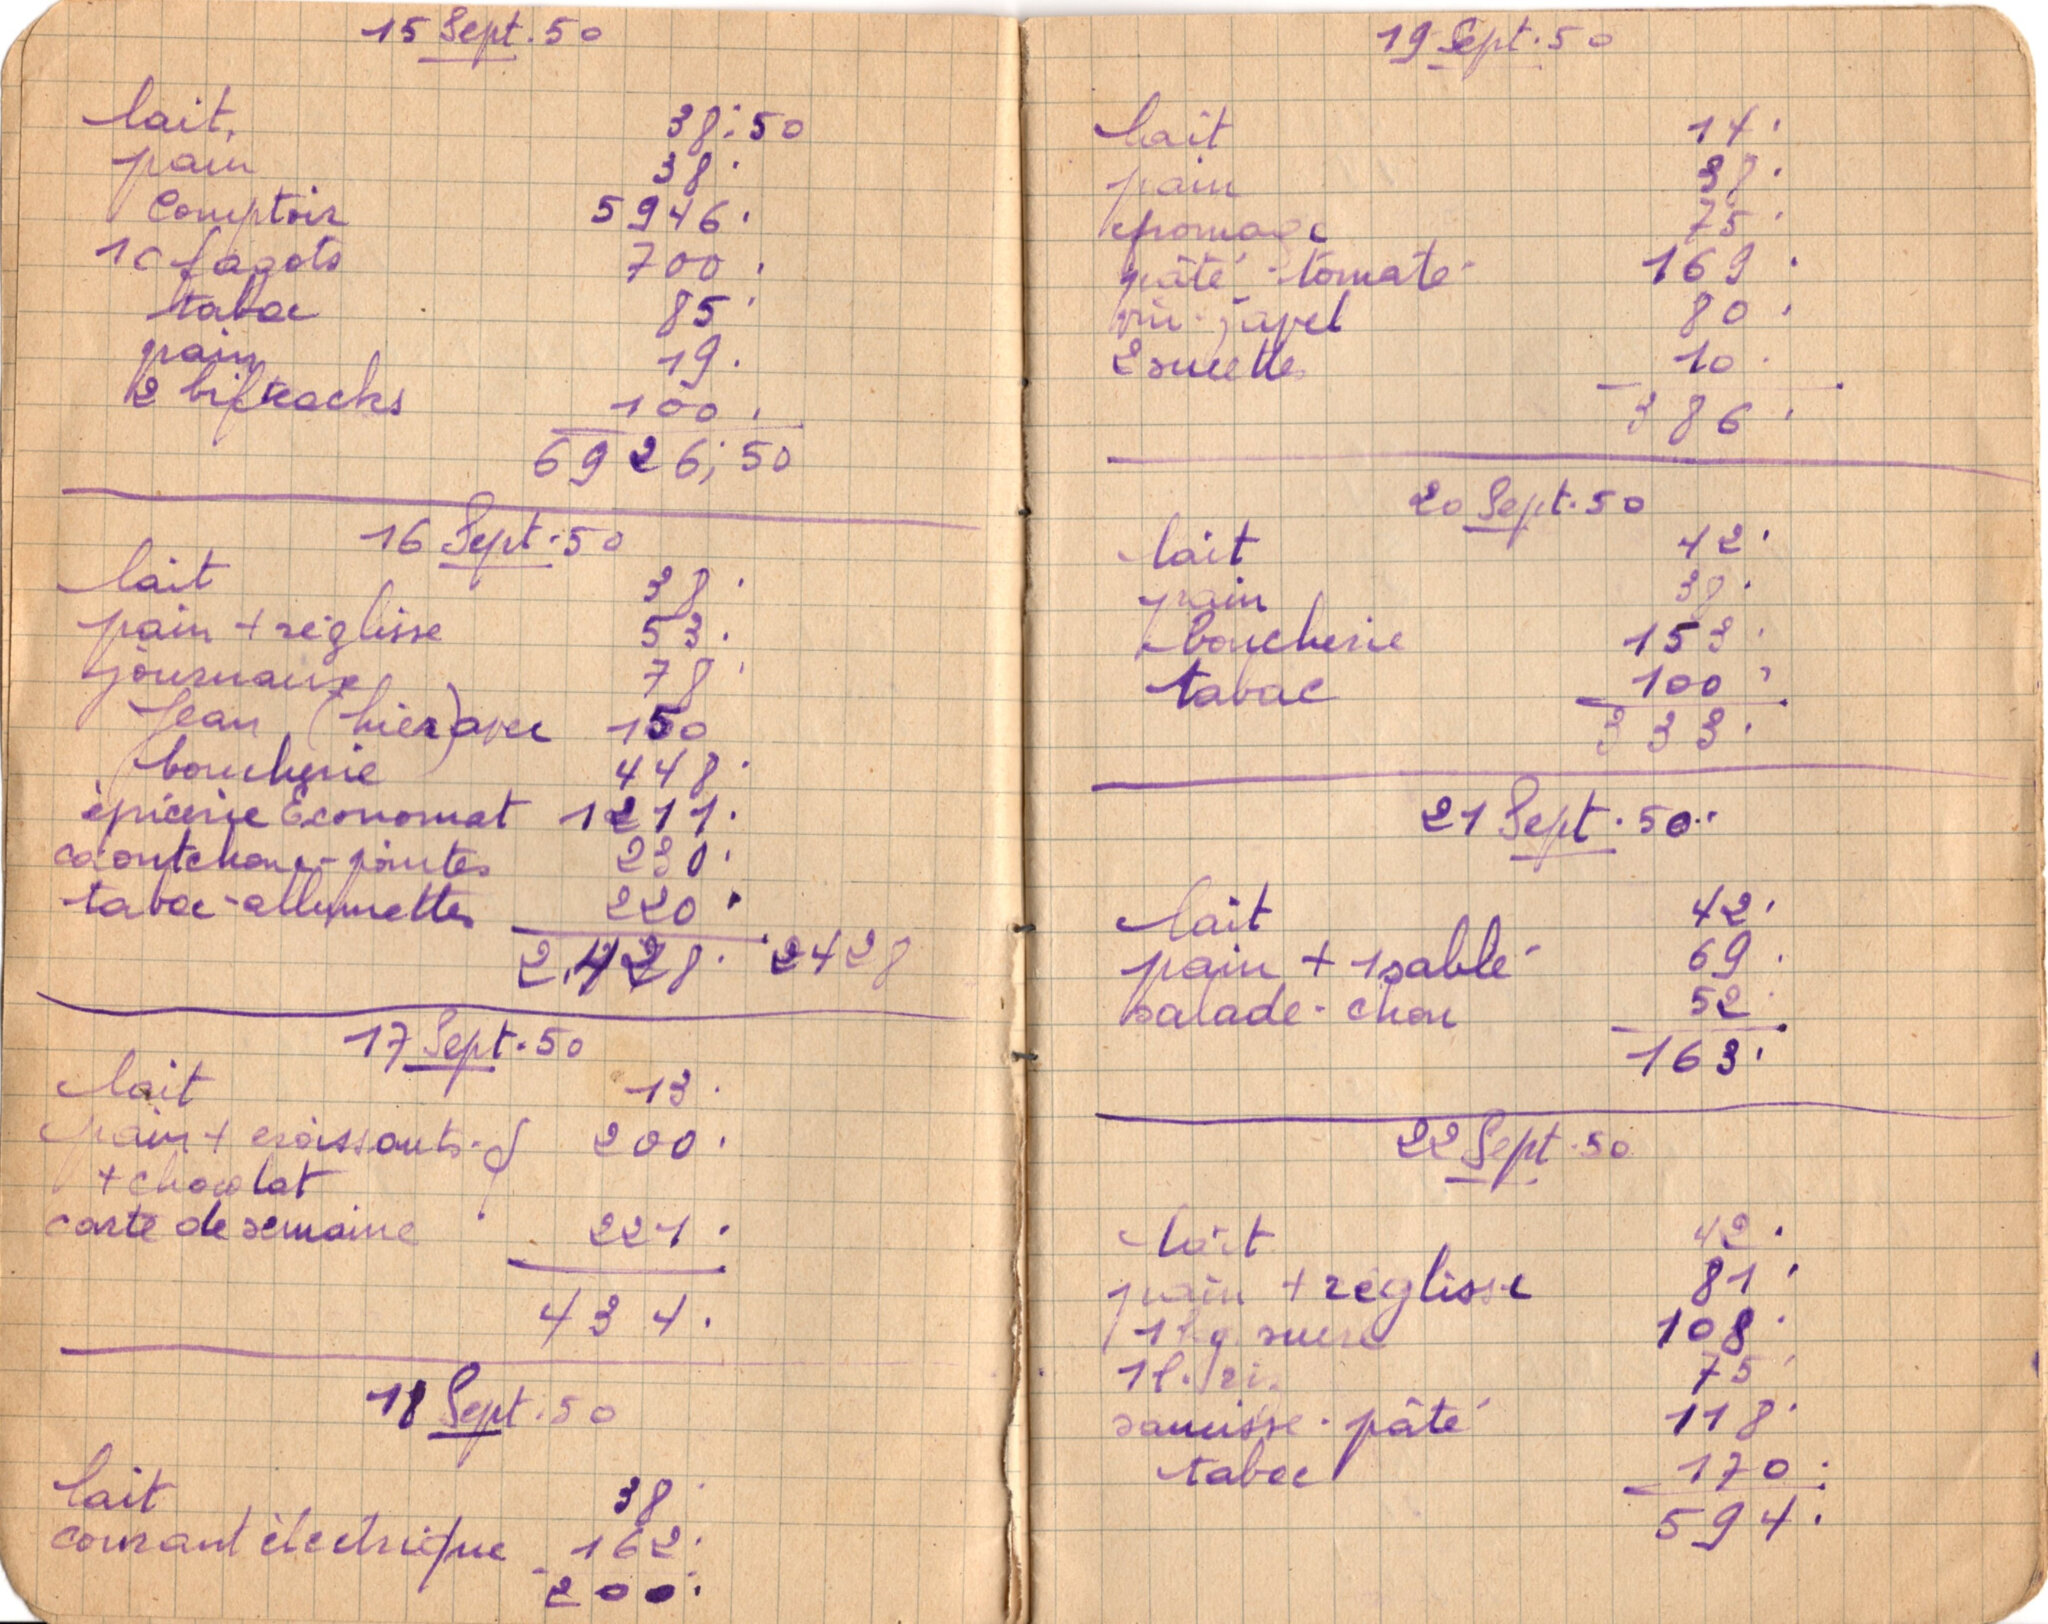 15 Sept. 50
lait, 38;50
pain 38.
Comptoir 5946.
10 fagots 700.
tabac 85.
pain 19.
2 bifteacks 100.
6926;50
16 Sept. 50
lait 38.
pain + réglisse 53.
journaux 78.
Jean (hier) avec 150
boucherie 448.
épicerie Économat 1211.
caoutchouc-pointes 230.
tabac-allumettes 220.
2.428. 2428
17 Sept. 50
lait 13.
pain + croissants 200.
+ chocolat
carte de semaine 221.
434.
18 Sept. 50
lait 38.
courant électrique 162.
200.
19 Sept. 50
lait 14.
pain 38.
75.
pâté - tomate 169.
vin - javel 80.
2 sucettes 10.
386.
20 Sept. 50
lait 42.
pain 38.
boucherie 153.
tabac 100.
333.
21 Sept. 50.
lait 42.
pain + 1 sablé 69.
salade - chou 52.
163.
22 Sept. 50
lait 42.
pain + réglisse 81.
1 kg. sucre 108.
75.
saucisse - pâté 118.
tabac 170.
594.